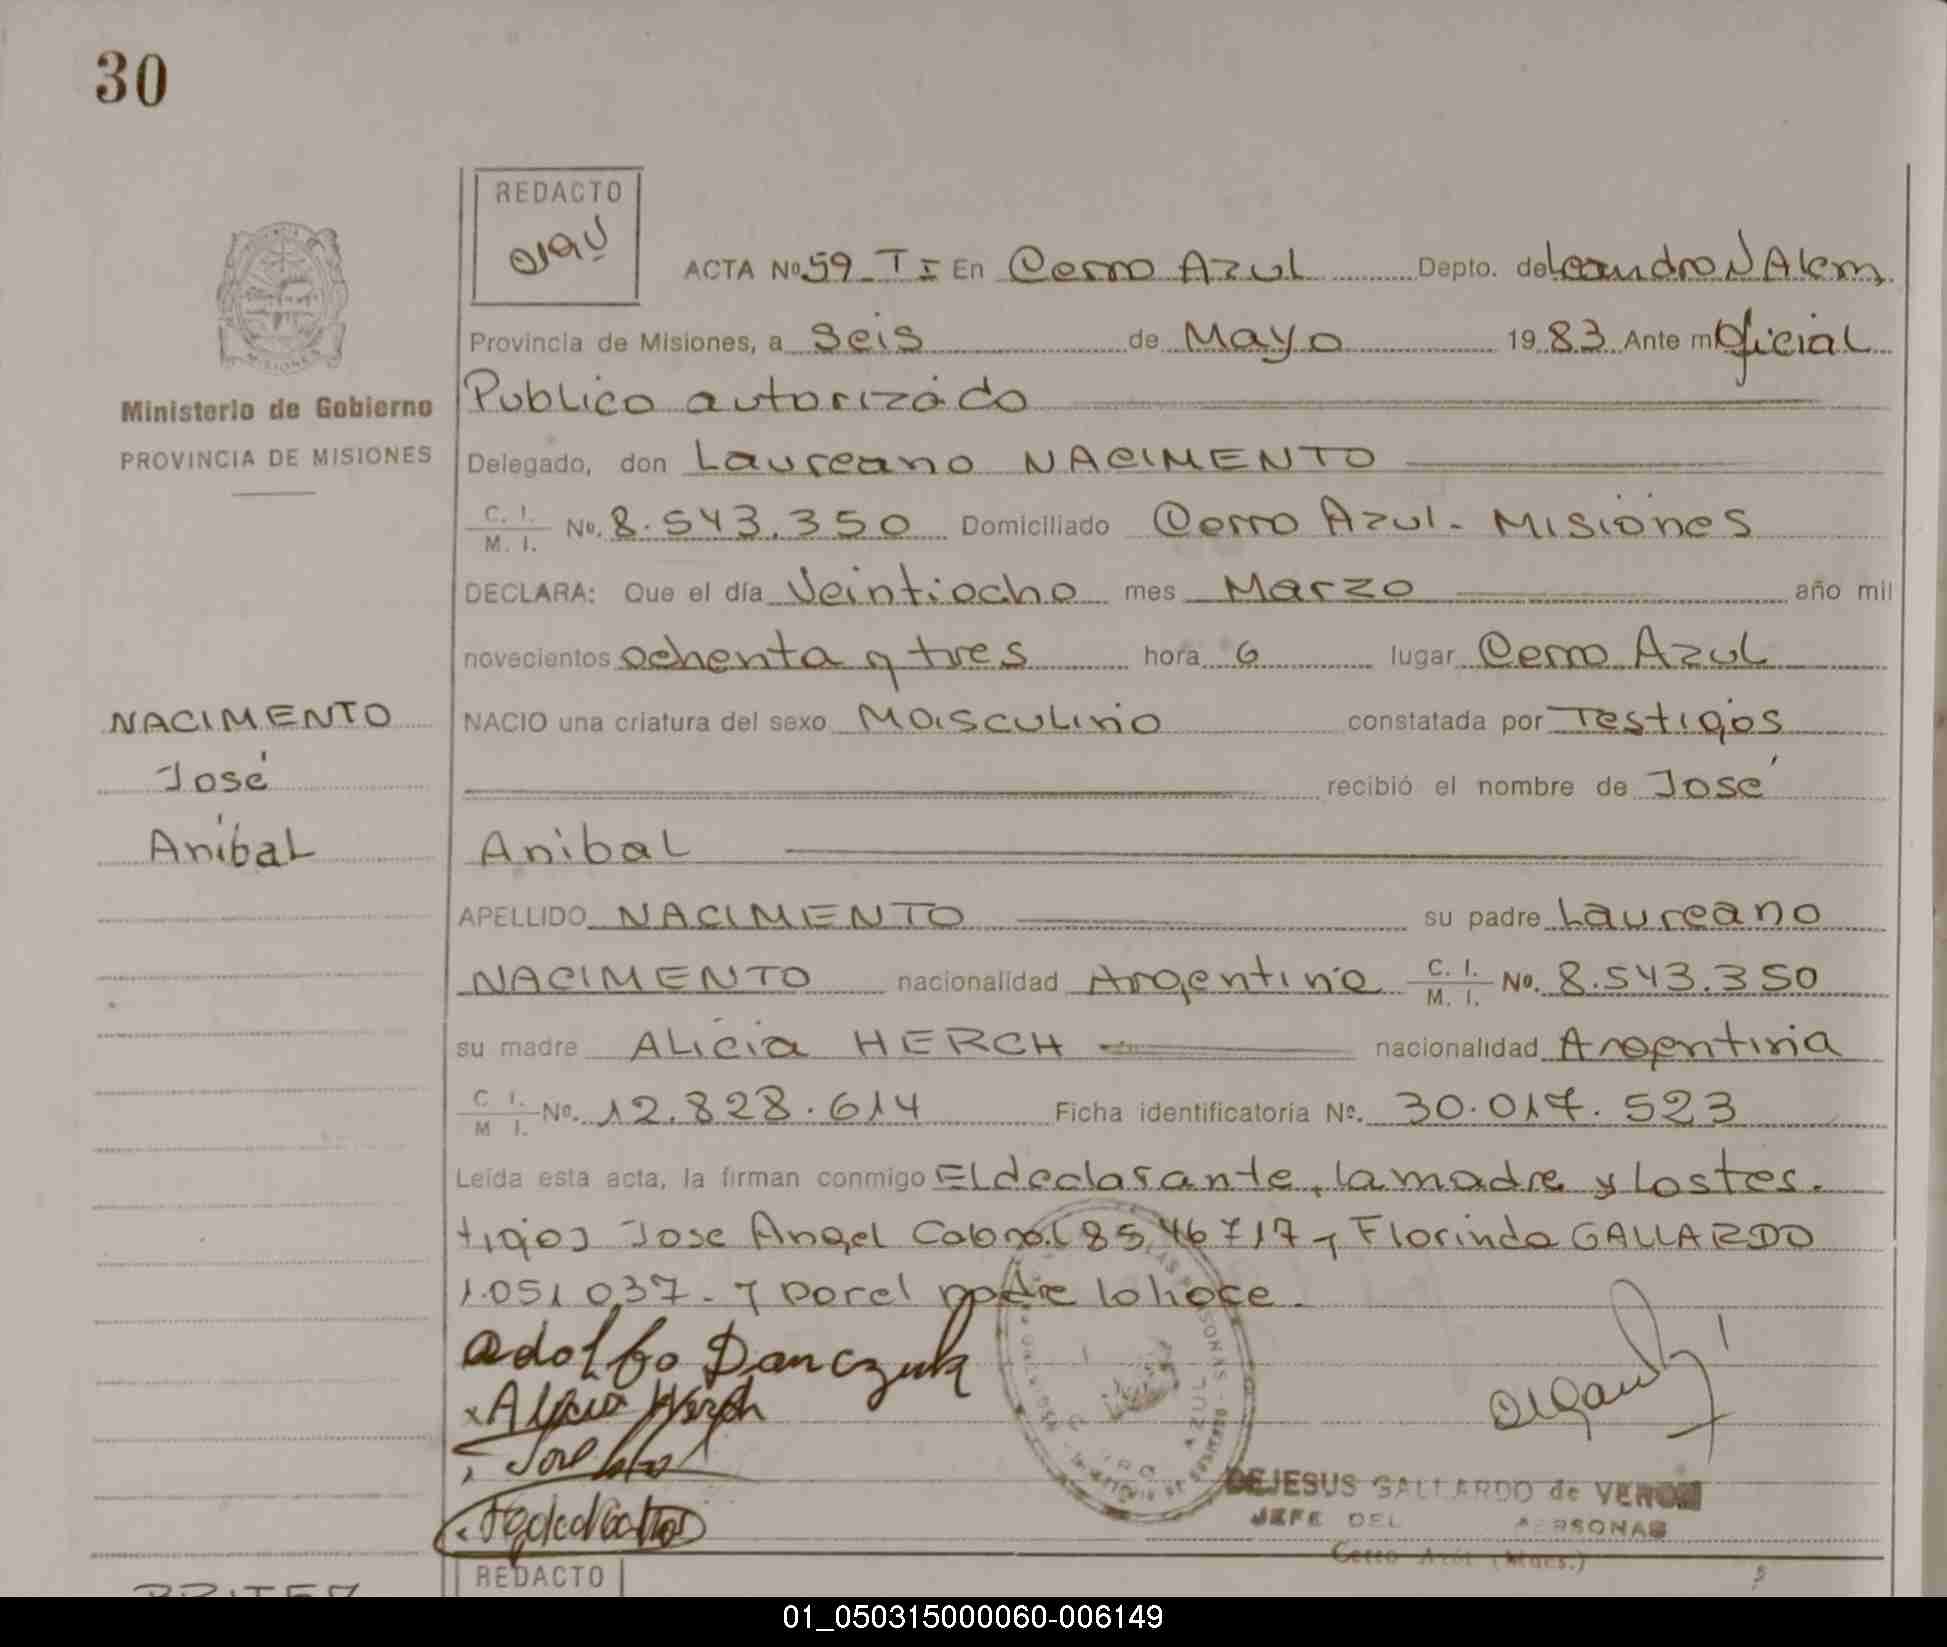 30
REDACTO
ACTA Nº 59-TI En Cerro Azul Depto. de Leandro N Alem,
Provincia de Misiones, a Seis de Mayo 1983 Ante mi Oficial
Publico autorizado
MISIONES
Ministerio de Gobierno
PROVINCIA DE MISIONES
Delegado, don Laureano NACIMENTO
C. I.
M. I. Nº. 8.543.350 Domiciliado Cerro Azul - Misiones
DECLARA: Que el día Veintiocho mes Marzo año mil
novecientos ochenta y tres hora 6 lugar Cerro Azul
NACIMENTO
José
Anibal
NACIO una criatura del sexo Masculino constatada por Testigos
recibió el nombre de José
Anibal
APELLIDO NACIMENTO su padre Laureano
NACIMENTO nacionalidad Argentino C. I. M. I. Nº. 8.543.350
su madre Alicia HERCH nacionalidad Argentina
C I. M I. Nº. 12.828.614 Ficha identificatoria Nº. 30.017.523
Leída esta acta, la firman conmigo El declarante, la madre y los tes-
tigos Jose Angel Cabral 8546717 y Florinda GALLARDO
1.051.037- y por el padre lo hace.
Adolfo Danczuk
x Alicia Herch
DEJESUS GALLARDO de VERON
JEFE DEL PERSONAS
Cerro Azul (Mnes.)
REDACTO
01_050315000060-006149